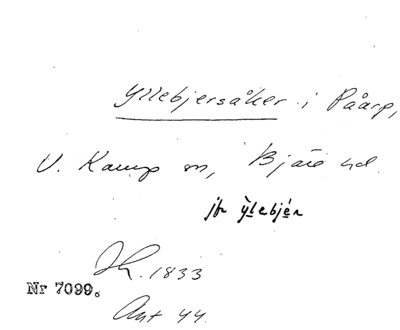 Yllebjersåker i Påarp,
V. Karup sn, Bjäre hd.
jfr ỳlebjér
Jh. 1833
Nr 7099.
Ant 44.